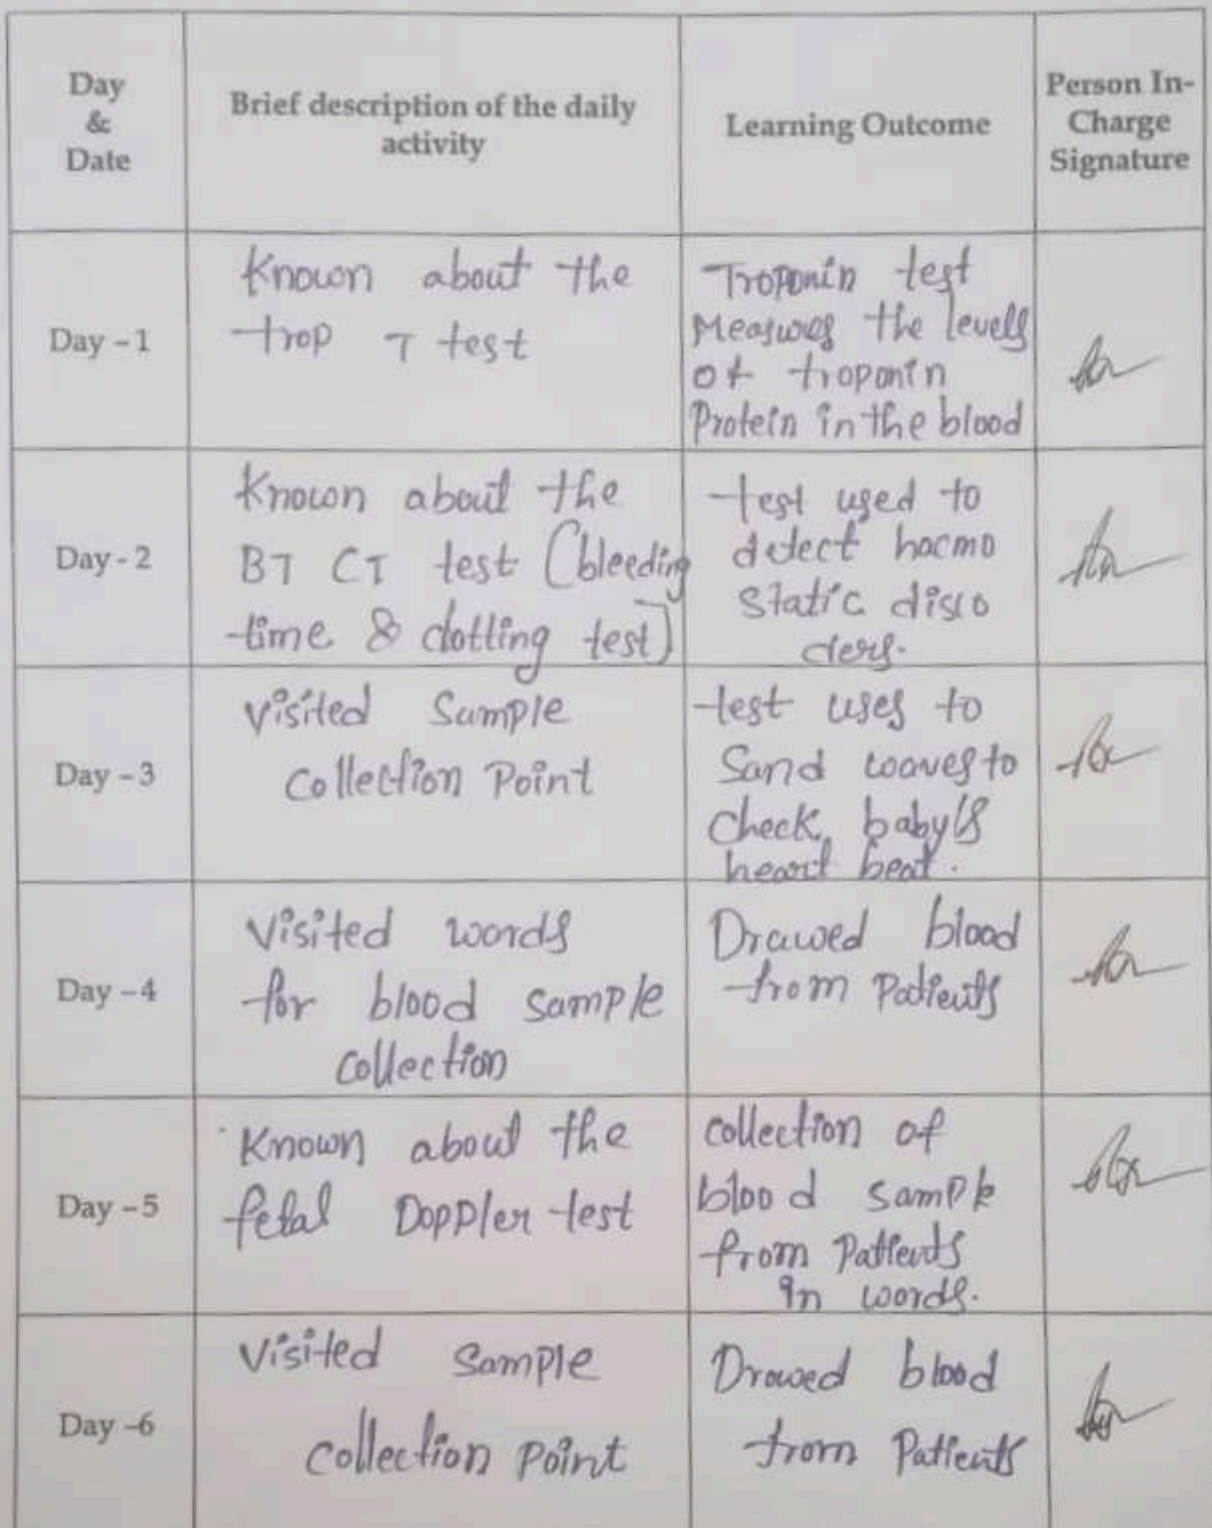 Day
&
Date
Brief description of the daily
activity
Learning Outcome
Person In-
Charge
Signature
Day - 1
Known about the
trop T test
Troponin test
Measures the levels
of troponin
Protein in the blood
Day - 2
Known about the
BT CT test (bleeding
time & clotting test)
test used to
detect hacmo
static diso
ders.
Day - 3
Visited Sample
Collection Point
test uses to
Sand waves to
check baby's
heart beat.
Day - 4
Visited words
for blood sample
collection
Drawed blood
from Patients
Day - 5
Known about the
fetal Doppler test
collection of
blood sample
from Patients
in words.
Day -6
Visited Sample
Collection Point
Drawed blood
from Patients